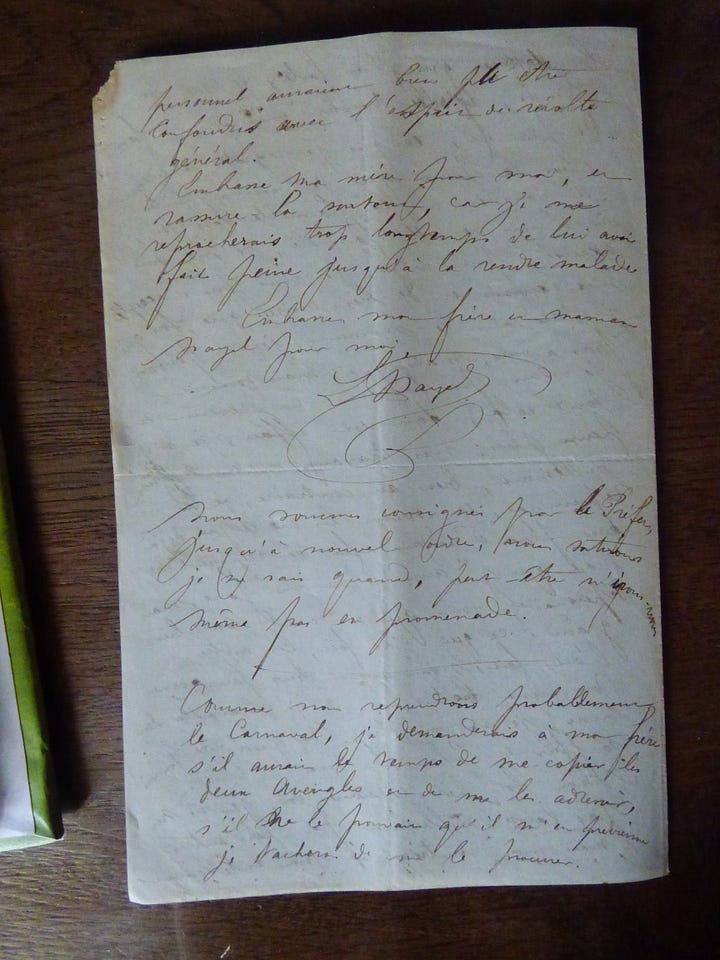 personnel auraient bien pu être
confondus avec l'esprit de révolte
général.
Embrasse ma mère pour moi, et
rassure la surtout, car je me
reprocherais trop longtemps de lui avoir
fait peine jusqu'à la rendre malade
Embrasse mon frère et maman
pour moi.
Nous sommes consignés par le Préfet,
jusqu'à nouvel ordre, nous sortirons
je ne sais quand, peut être n'irons-nous
même pas en promenade.
Comme nous reprendrons probablement
le Carnaval, je demanderais à mon frère
s'il aurait le temps de me copier les
deux Aveugles et de me les adresser,
s'il ne le pouvait qu'il m'en prévienne
je tacherai de me le procurer.